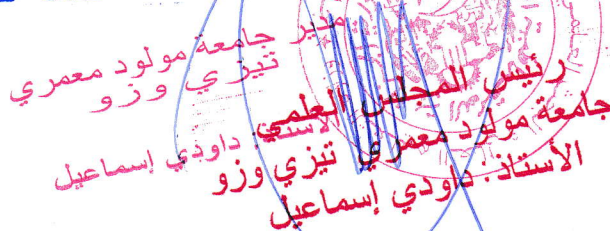 مدير جامعة مولود معمري
تيزي وزو
الأستاذ: داودي إسماعيل
رئيس المجلس العلمي
جامعة مولود معمري تيزي وزو
الأستاذ: داودي إسماعيل